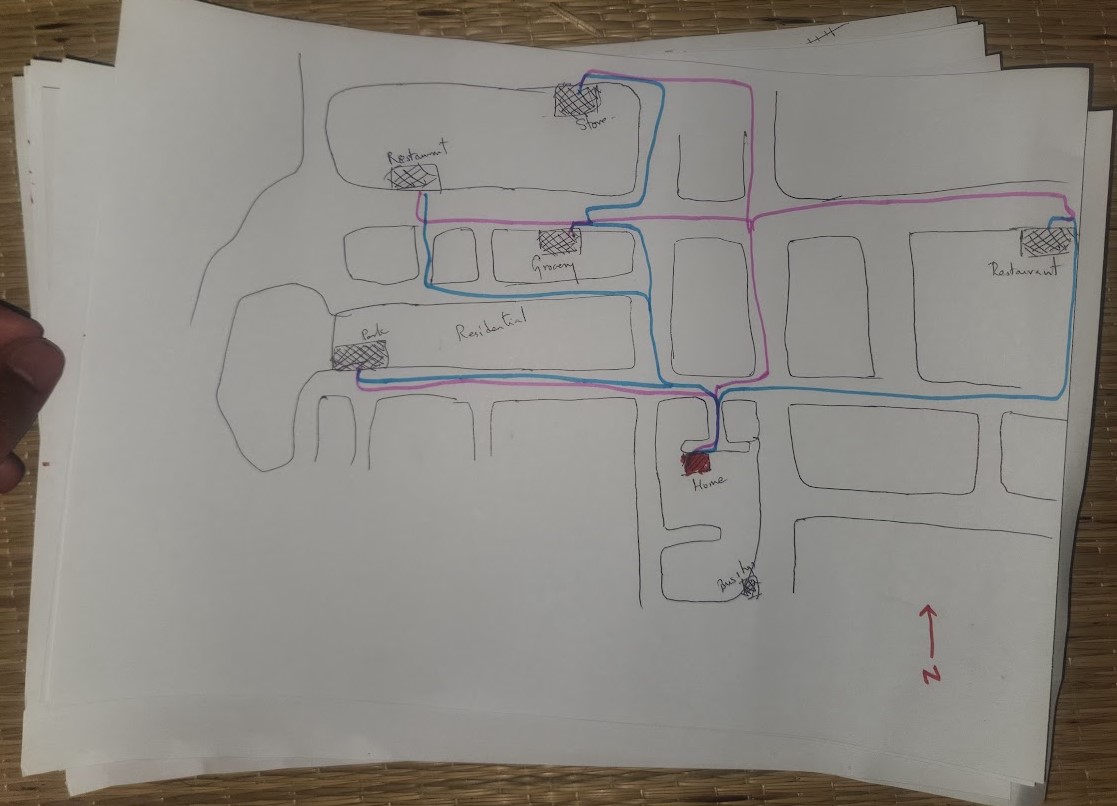 Store
Restaurant
Grocery
Restaurant
Residential
Park
Home
Bus stop
N